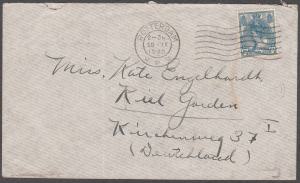 ROTTERDAM
Miss. Kate Engelhardt,
Kiel Gaarden
Kirchenweg 37 I
(Deutchland)